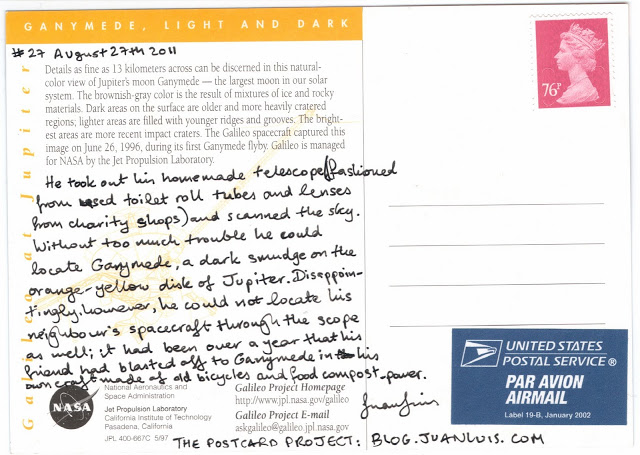 GANYMEDE, LIGHT AND DARK
#27 August 27th 2011
Galileo at Jupiter
Details as fine as 13 kilometers across can be discerned in this natural-
color view of Jupiter's moon Ganymede — the largest moon in our solar
system. The brownish-gray color is the result of mixtures of ice and rocky
materials. Dark areas on the surface are older and more heavily cratered
regions; lighter areas are filled with younger ridges and grooves. The bright-
est areas are more recent impact craters. The Galileo spacecraft captured this
image on June 26, 1996, during its first Ganymede flyby. Galileo is managed
for NASA by the Jet Propulsion Laboratory.
He took out his homemade telescope (fashioned
from used toilet roll tubes and lenses
from charity shops) and scanned the sky.
Without too much trouble he could
locate Ganymede, a dark smudge on the
orange-yellow disk of Jupiter. Disappoin-
tingly, however, he could not locate his
neighbour's spacecraft through the scope
as well; it had been over a year that his
friend had blasted off to Ganymede in his
own craft made of old bicycles and food compost-power.
NASA
National Aeronautics and
Space Administration
Jet Propulsion Laboratory
California Institute of Technology
Pasadena, California
JPL 400-667C 5/97
Galileo Project Homepage
http://www.jpl.nasa.gov/galileo
Galileo Project E-mail
askgalileo@galileo.jpl.nasa.gov
THE POSTCARD PROJECT: BLOG.JUANLUIS.COM
76P
UNITED STATES
POSTAL SERVICE®
PAR AVION
AIRMAIL
Label 19-B, January 2002